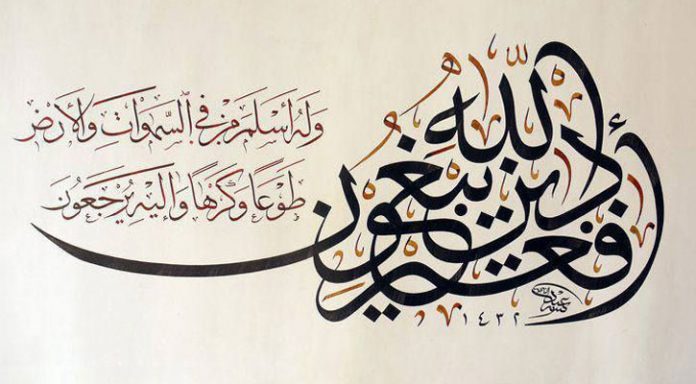 أَفَغَيْرَ دِينِ اللَّهِ يَبْغُونَ
وَلَهُ أَسْلَمَ مَنْ فِي ٱلسَّمٰوَاتِ وَالْأَرْضِ
طَوْعًا وَكَرْهًا وَإِلَيْهِ يُرْجَعُونَ
١٤٣٢